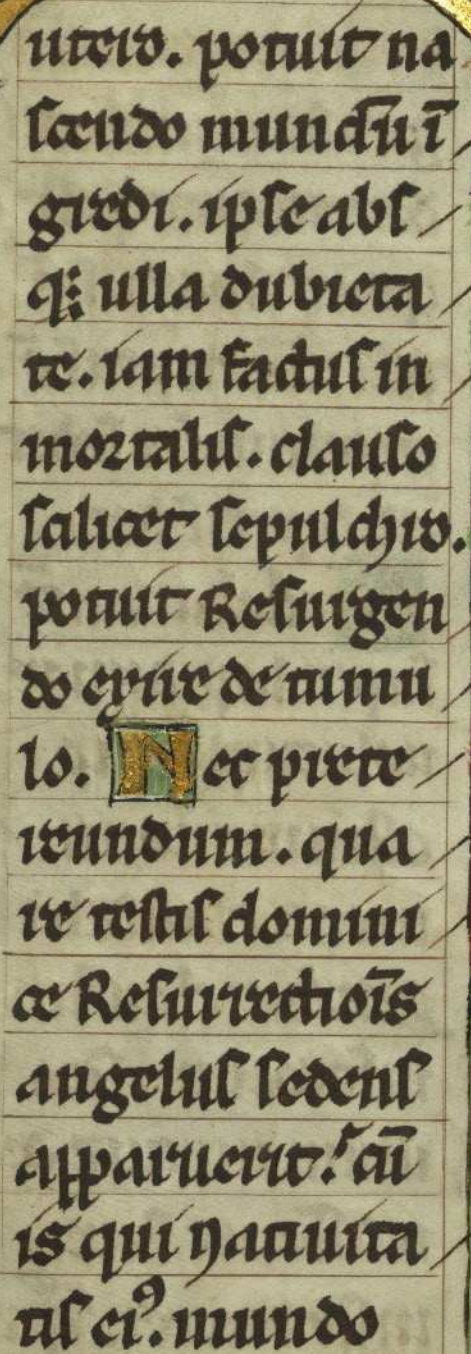 utero. potuit na
scendo mundū ī
gredi. ipse abs
q; ulla dubieta
te. iam factus in
mortalis. clauso
scilicet sepulchro.
potuit Resurgen
do exire de tumu
lo. Nec prete
reundum. qua
re testis domini
ce Resurrectiōis
angelus sedens
apparuerit. cū
is qui natiuita
tis eiꝰ. mundo